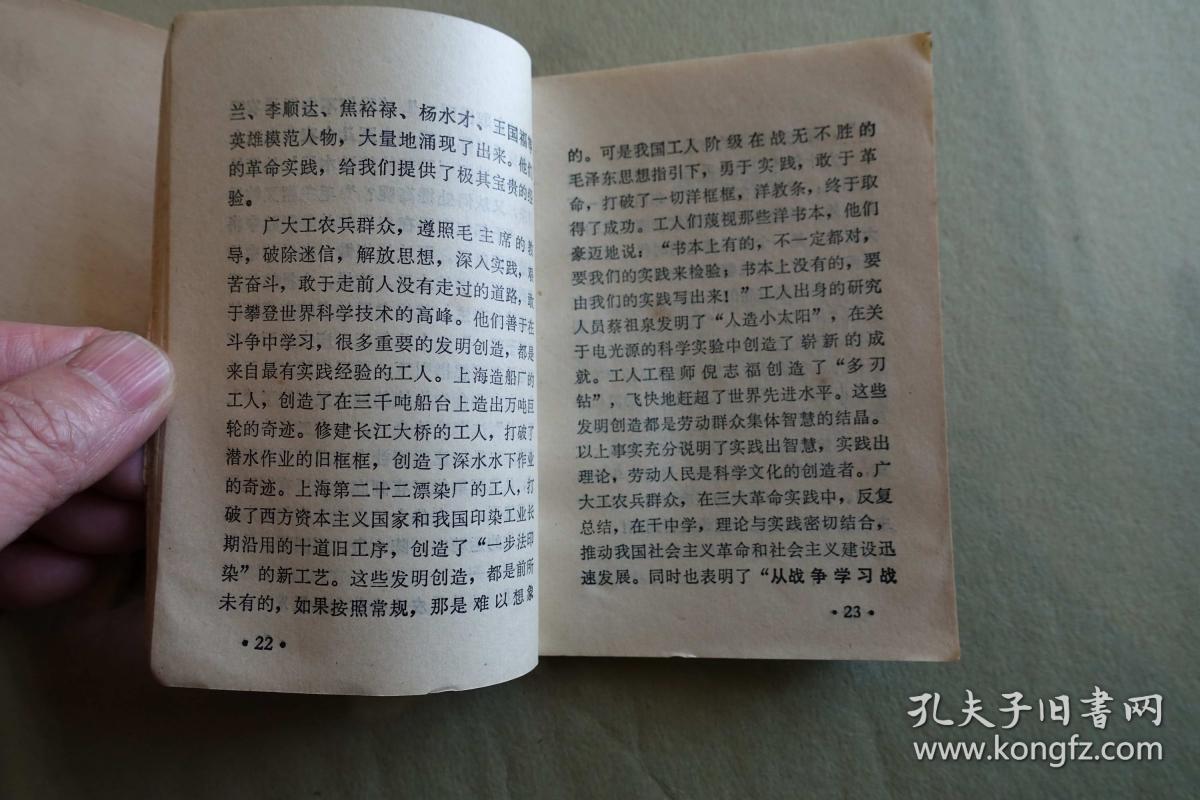 兰、李顺达、焦裕禄、杨水才、王国福等
英雄模范人物，大量地涌现了出来。他们
的革命实践，给我们提供了极其宝贵的经
验。
广大工农兵群众，遵照毛主席的教
导，破除迷信，解放思想，深入实践，艰
苦奋斗，敢于走前人没有走过的道路，敢
于攀登世界科学技术的高峰。他们善于在
斗争中学习，很多重要的发明创造，都是
来自最有实践经验的工人。上海造船厂的
工人，创造了在三千吨船台上造出万吨巨
轮的奇迹。修建长江大桥的工人，打破了
潜水作业的旧框框，创造了深水水下作业
的奇迹。上海第二十二漂染厂的工人，打
破了西方资本主义国家和我国印染工业长
期沿用的十道旧工序，创造了“一步法印
染”的新工艺。这些发明创造，都是前所
未有的，如果按照常规，那是难以想像
•22•
的。可是我国工人阶级在战无不胜的
毛泽东思想指引下，勇于实践，敢于革
命，打破了一切洋框框，洋教条，终于取
得了成功。工人们蔑视那些洋书本，他们
豪迈地说：“书本上有的，不一定都对，
要我们的实践来检验；书本上没有的，要
由我们的实践写出来！”工人出身的研究
人员蔡祖泉发明了“人造小太阳”，在关
于电光源的科学实验中创造了崭新的成
就。工人工程师倪志福创造了“多刃
钻”，飞快地赶超了世界先进水平。这些
发明创造都是劳动群众集体智慧的结晶。
以上事实充分说明了实践出智慧，实践出
理论，劳动人民是科学文化的创造者。广
大工农兵群众，在三大革命实践中，反复
总结，在干中学，理论与实践密切结合，
推动我国社会主义革命和社会主义建设迅
速发展。同时也表明了“从战争学习战
•23•
孔夫子旧書网
www.kongfz.com